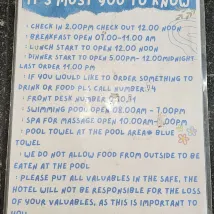 IT'S MUST YOU TO KNOW
· CHECK IN 2.00PM CHECK OUT 12.00 NOON
· BREAKFAST OPEN 07.00-11.00 AM
· LUNCH START TO OPEN 12.00 NOON
· DINNER START TO OPEN 5.00PM- 12.00MIDNIGHT
LAST ORDER 11.00 PM
· IF YOU WOULD LIKE TO ORDER SOMETHING
TO DRINK OR FOOD PLS CALL NUMBER
· FRONT DESK NUMBER
· SWIMMING POOL OPEN 08.00AM - 7.00PM
· SPA FOR MASSAGE OPEN 10.00AM-
· POOL TOWEL AT THE POOL AREA
TOWEL
· WE DO NOT ALLOW FOOD FROM OUTSIDE TO BE
EATEN AT THE POOL
· PLEASE PUT ALL VALUABLES IN THE SAFE, THE
HOTEL WILL NOT BE RESPONSIBLE FOR THE LOSS
OF YOUR VALUABLES, AS THIS IS IMPORTANT TO
YOU